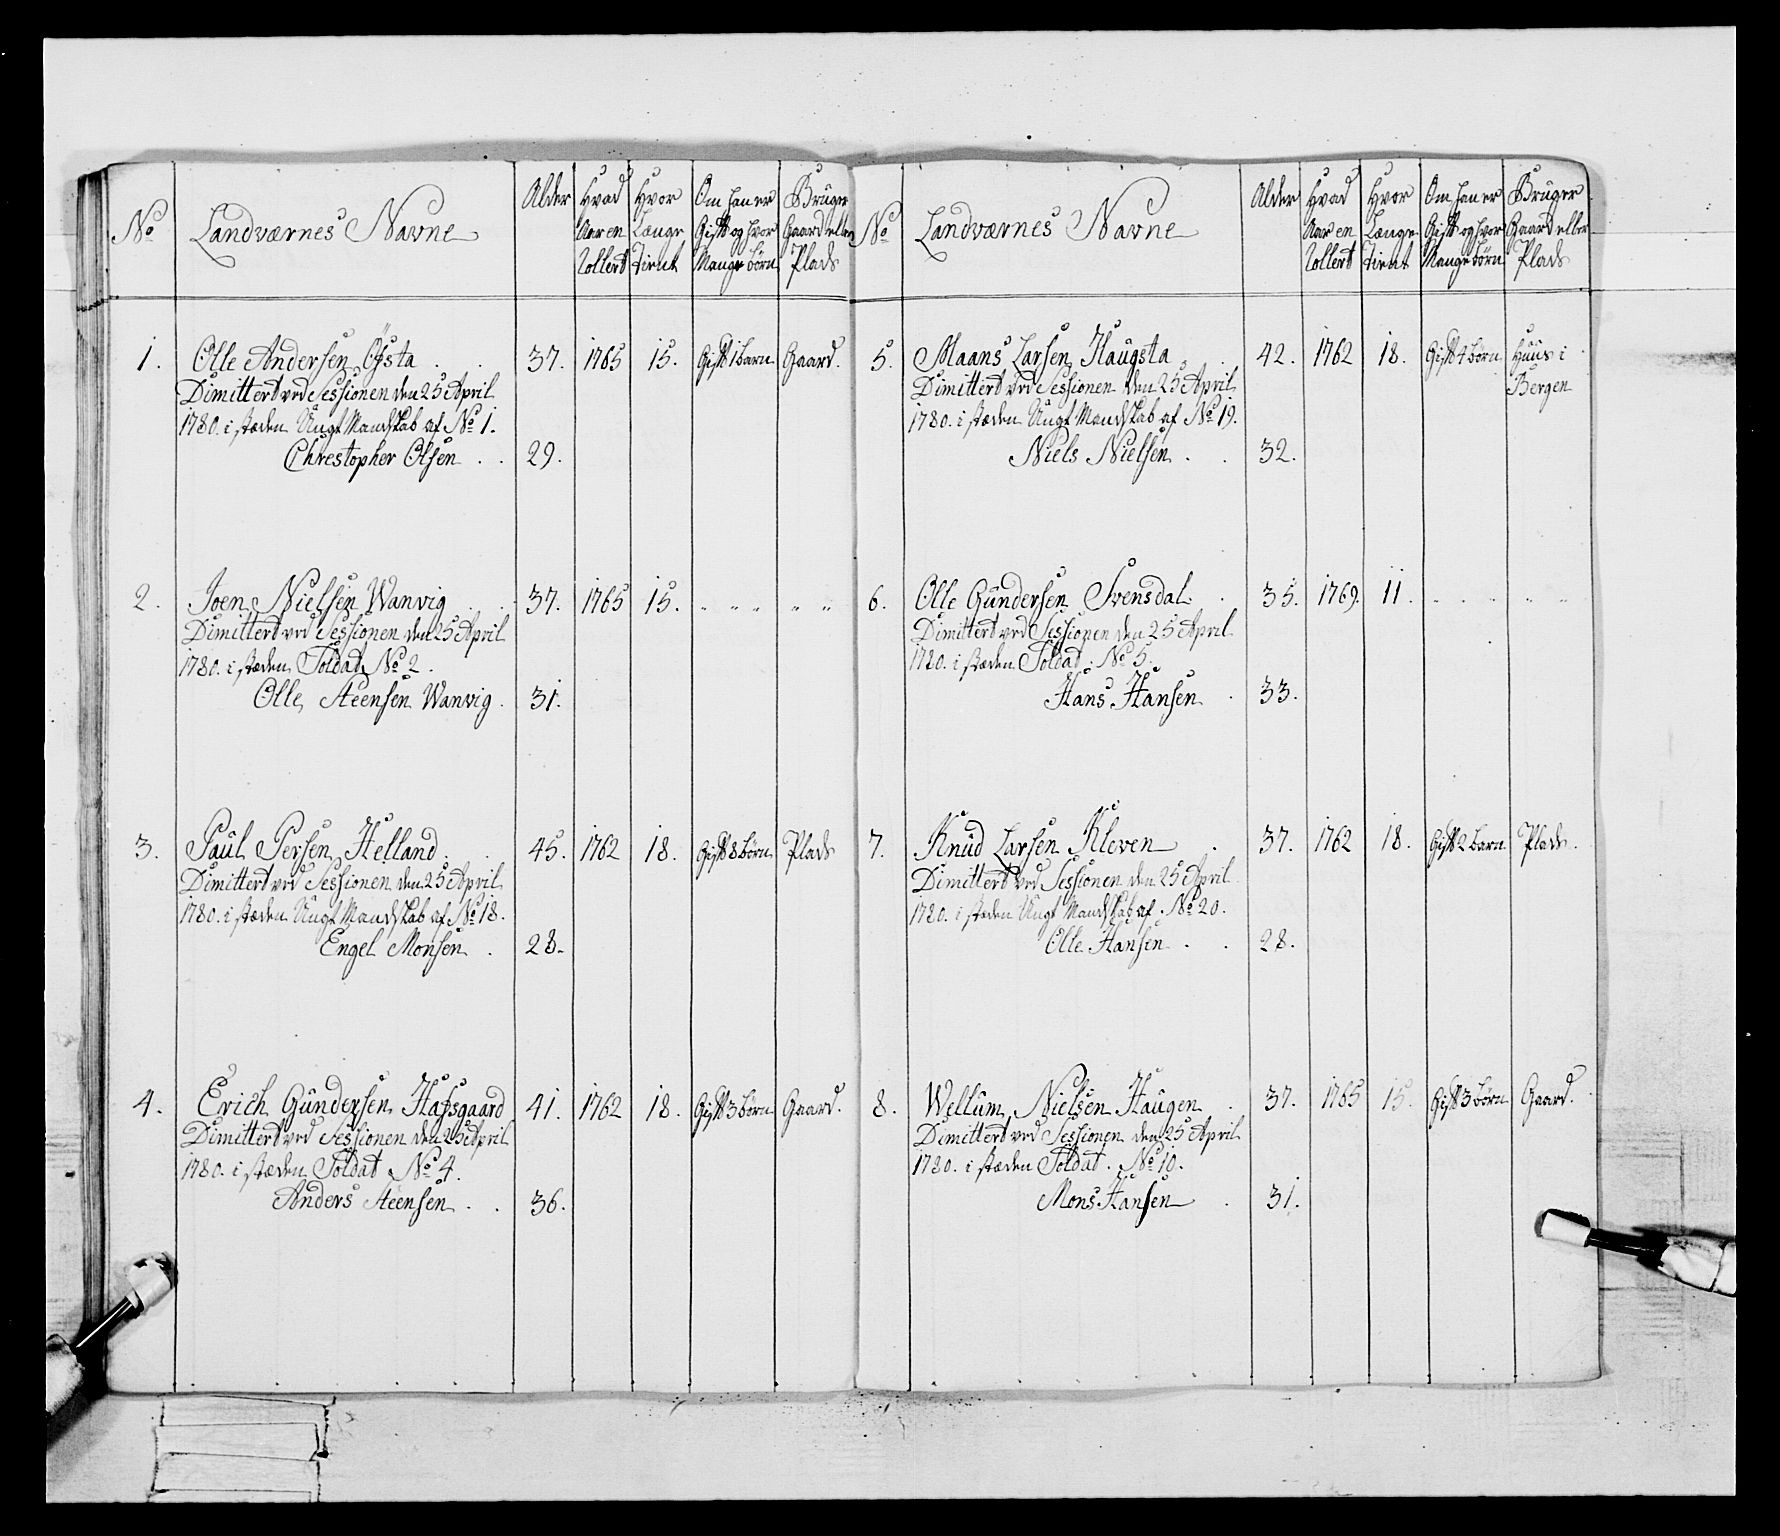 No
Landværnes Navne
Alder
Hvad Aar en Rollert
Hvor Længe Tient
Om han er Gift og hvor Mange børn
Bruger Gaard eller Plads
1. Olle Andersen Öÿsta 37. 1765 15. Gift 1 barn Gaard.
Dimittert ved Sessionen den 25 April
1780. i stæden Ungt Mandskab af No 1.
Chrestopher Olsen 29.
2. Joen Nielsen Wanvig 37. 1765 15. " " " " "
Dimittert ved Sessionen den 25 April
1780. i stæden Soldat No 2.
Olle Steensen Wanvig. 31.
3. Paul Persen Helland 45. 1762 18. Gift 8 børn Plads
Dimittert ved Sessionen den 25 April
1780. i stæden Ungt Mandskab af No 18.
Engel Monsen 28.
4. Erich Gundersen Hafsgaard 41. 1762 18. Gift 3 børn Gaard.
Dimittert ved Sessionen den 25 April
1780. i stæden Soldat No 4.
Anders Steensen 36.
No
Landværnes Navne
Alder
Hvad Aar en Rollert
Hvor Længe Tient
Om han er Gift og hvor Mange børn
Bruger Gaard eller Plads
5. Maans Larsen Haugsta 42. 1762 18. Gift 4 børn Huus i
Bergen
Dimittert ved Sessionen den 25 April
1780. i stæden Ungt Mandskab af No 19.
Niels Nielsen 32.
6. Olle Gundersen Svensdal 35. 1769. 11. " " " " "
Dimittert ved Sessionen den 25 April
1780. i stæden Soldat No 5.
Hans Hansen 33.
7. Knud Larsen Kleven 37. 1762 18. Gift 2 barn Plads.
Dimittert ved Sessionen den 25 April
1780. i stæden Ungt Mandskab af No 20.
Olle Hansen 28.
8. Wellum Nielsen Haugen 37. 1765 15. Gift 3 børn Gaard.
Dimittert ved Sessionen den 25 April
1780. i stæden Soldat. No 10.
Mons Hansen 31.